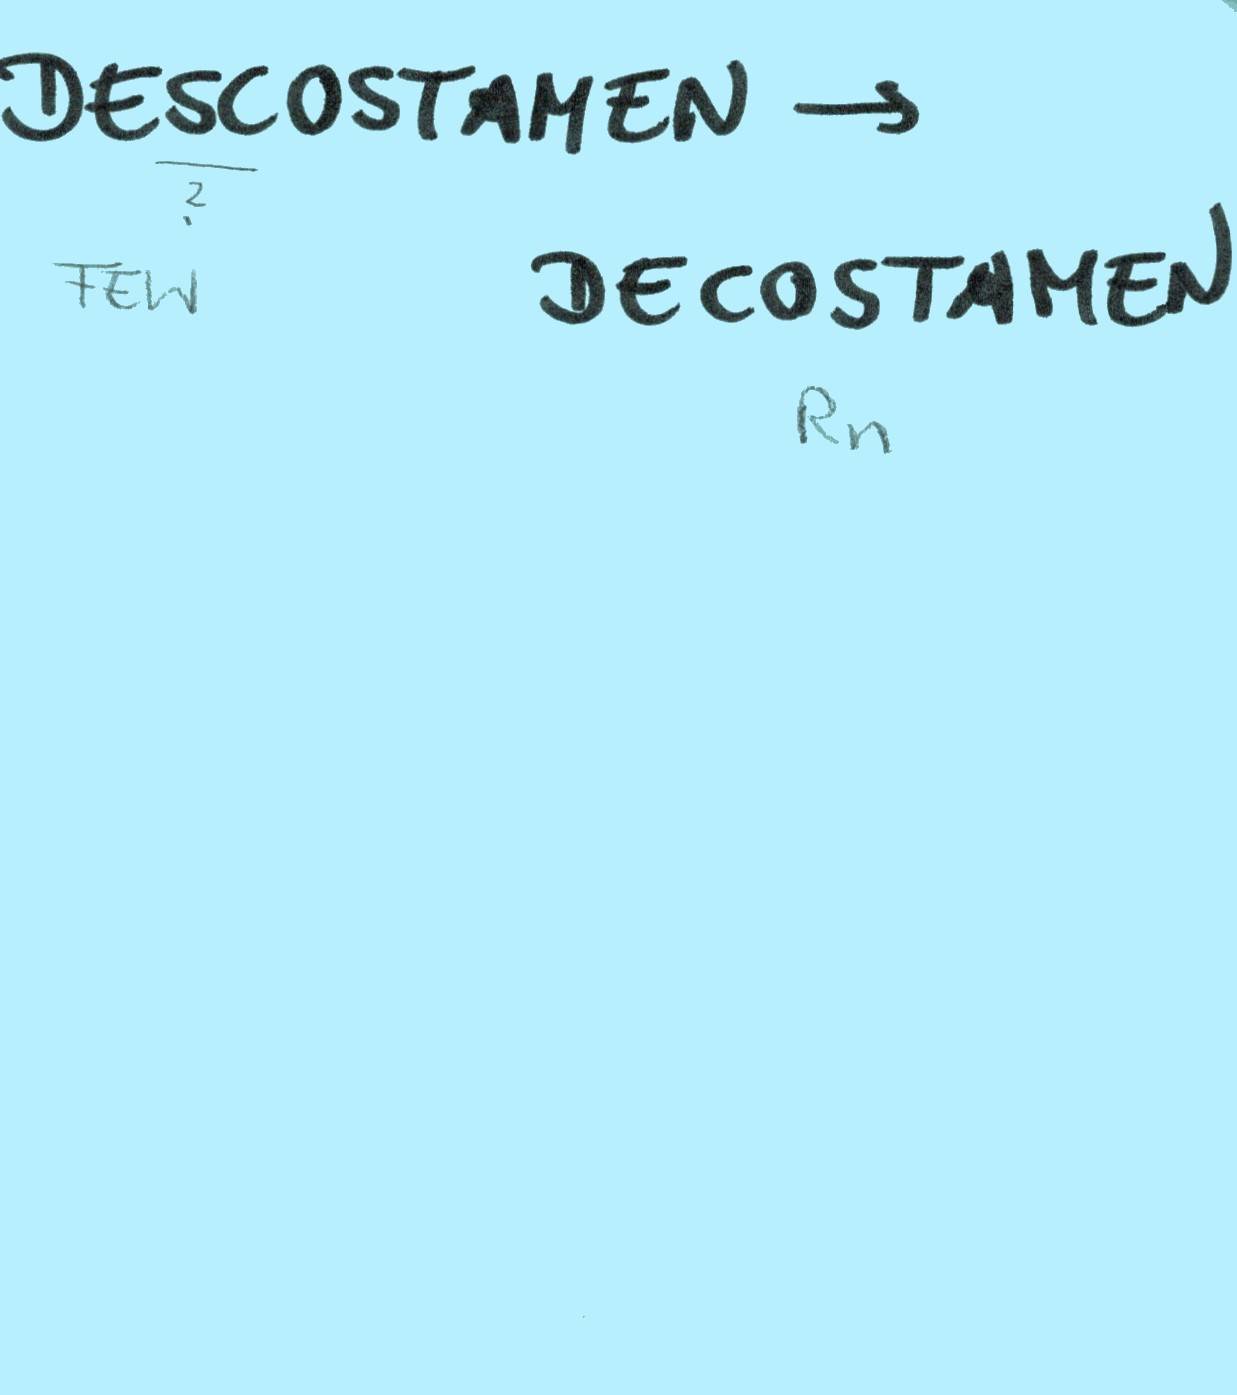 DESCOSTAMEN →
?
FEW
DECOSTAMEN
Rn